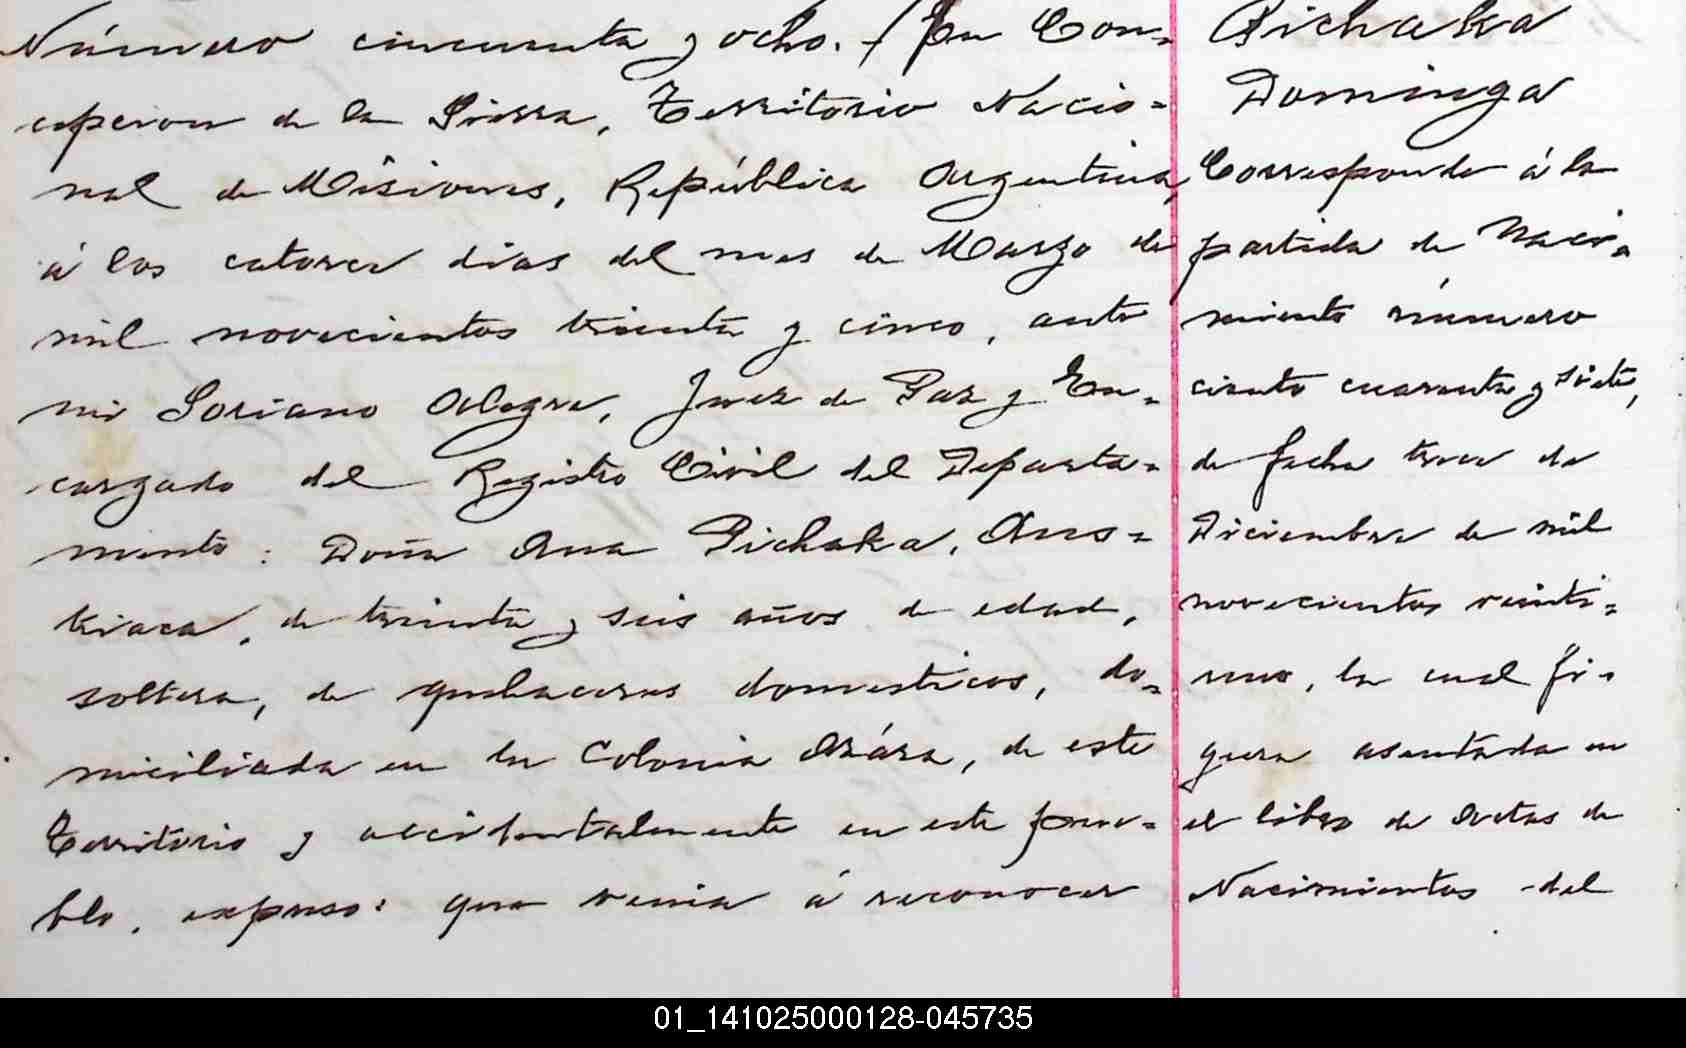 Número cincuenta y ocho. / En Con-
cepcion de la Sierra, Territorio Nacio-
nal de Misiones, República Argentina,
á los catorce dias del mes de Marzo de
mil novecientos treinta y cinco, ante
mi Soriano Alegre, Juez de Paz y En-
cargado del Registro Civil del Departa-
mento: Doña Ana Pichaka, Aus-
triaca, de treinta y seis años de edad,
soltera, de quehaceres domesticos, do-
miciliada en la Colonia Azára, de este
Territorio y accidentalmente en este pue-
blo, expuso: que venia á reconocer
Pichaka
Dominga
Corresponde á la
partida de Naci-
miento número
ciento cuarenta y siete,
de fecha trece de
Diciembre de mil
novecientos veinti-
uno, la cual fi-
gura asentada en
el libro de Actas de
Nacimientos del
01_141025000128-045735